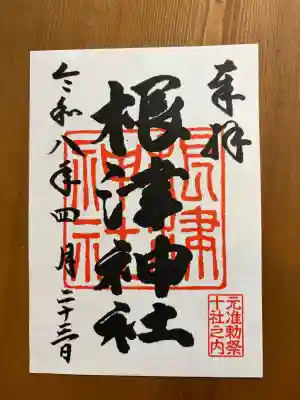 奉拝
根津神社
令和八年四月二十三日
根津神社
元准勅祭
十社之内